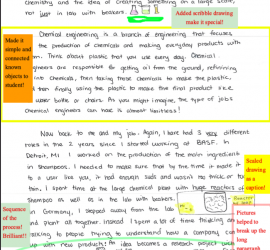 chemistry and the idea of creating something on a large scale,
not just in lab with beakers.
Added scribble drawing
make it special!
Made it
simple and
connected
known
objects to
student!
Chemical engineering is a branch of engineering that focuses
the production of chemicals and making everyday products with
Think about plastic that you use every day. Chemical
engineers are responsible for getting oil from the ground, refining
into chemicals, then taking those chemicals to make the plastic,
then finally using the plastic to make the final product like
water bottle or chairs. As you might imagine, the type of jobs
Chemical engineers can have is almost limitless!
Now back to me and my job. Again, I have had 3 very different
roles in the 2 years since I started working at BASF. In
Detroit, MI I worked on the production of the main ingredients
in shampoos. I needed to make sure that by the time it made it
to a user like you, it had enough suds and wasn't too thick or too
thin. I spent time at the large chemical plant with huge reactors of
Shampoo as well as in the lab with beakers.
in Germany, I stepped away from the lab
and plant all together. Instead I spent a lot of time thinking and
talking to people trying to understand how a company can
come up with new products! An idea becomes a research project
Scaled
drawing
as a
caption!
Sequence
of the
process!
Brilliant!!
Pictures
helped to
break up the
long
paragraph